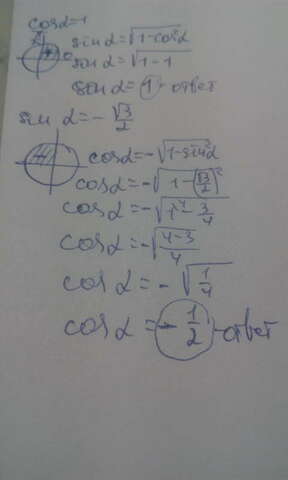 cosα=1
sinα=√1-cosα
sinα=√1-1
sinα=1-ответ
sinα=-√3/2
cosα=-√1-sin²α
cosα=-√1-(√3/2)²
cosα=-√1-3/4
cosα=-√4-3/4
cosα=-√1/4
cosα=-1/2-ответ